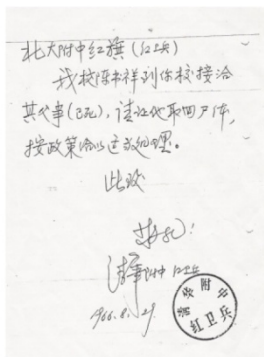 北大附中红旗(红卫兵)
我校陈书祥到你校接洽
其父事(已死),请让他取回尸体,
按政策给以适当处理。
此致
敬礼!
清华附中 红卫兵
1966.8.29
清华附中
红卫兵